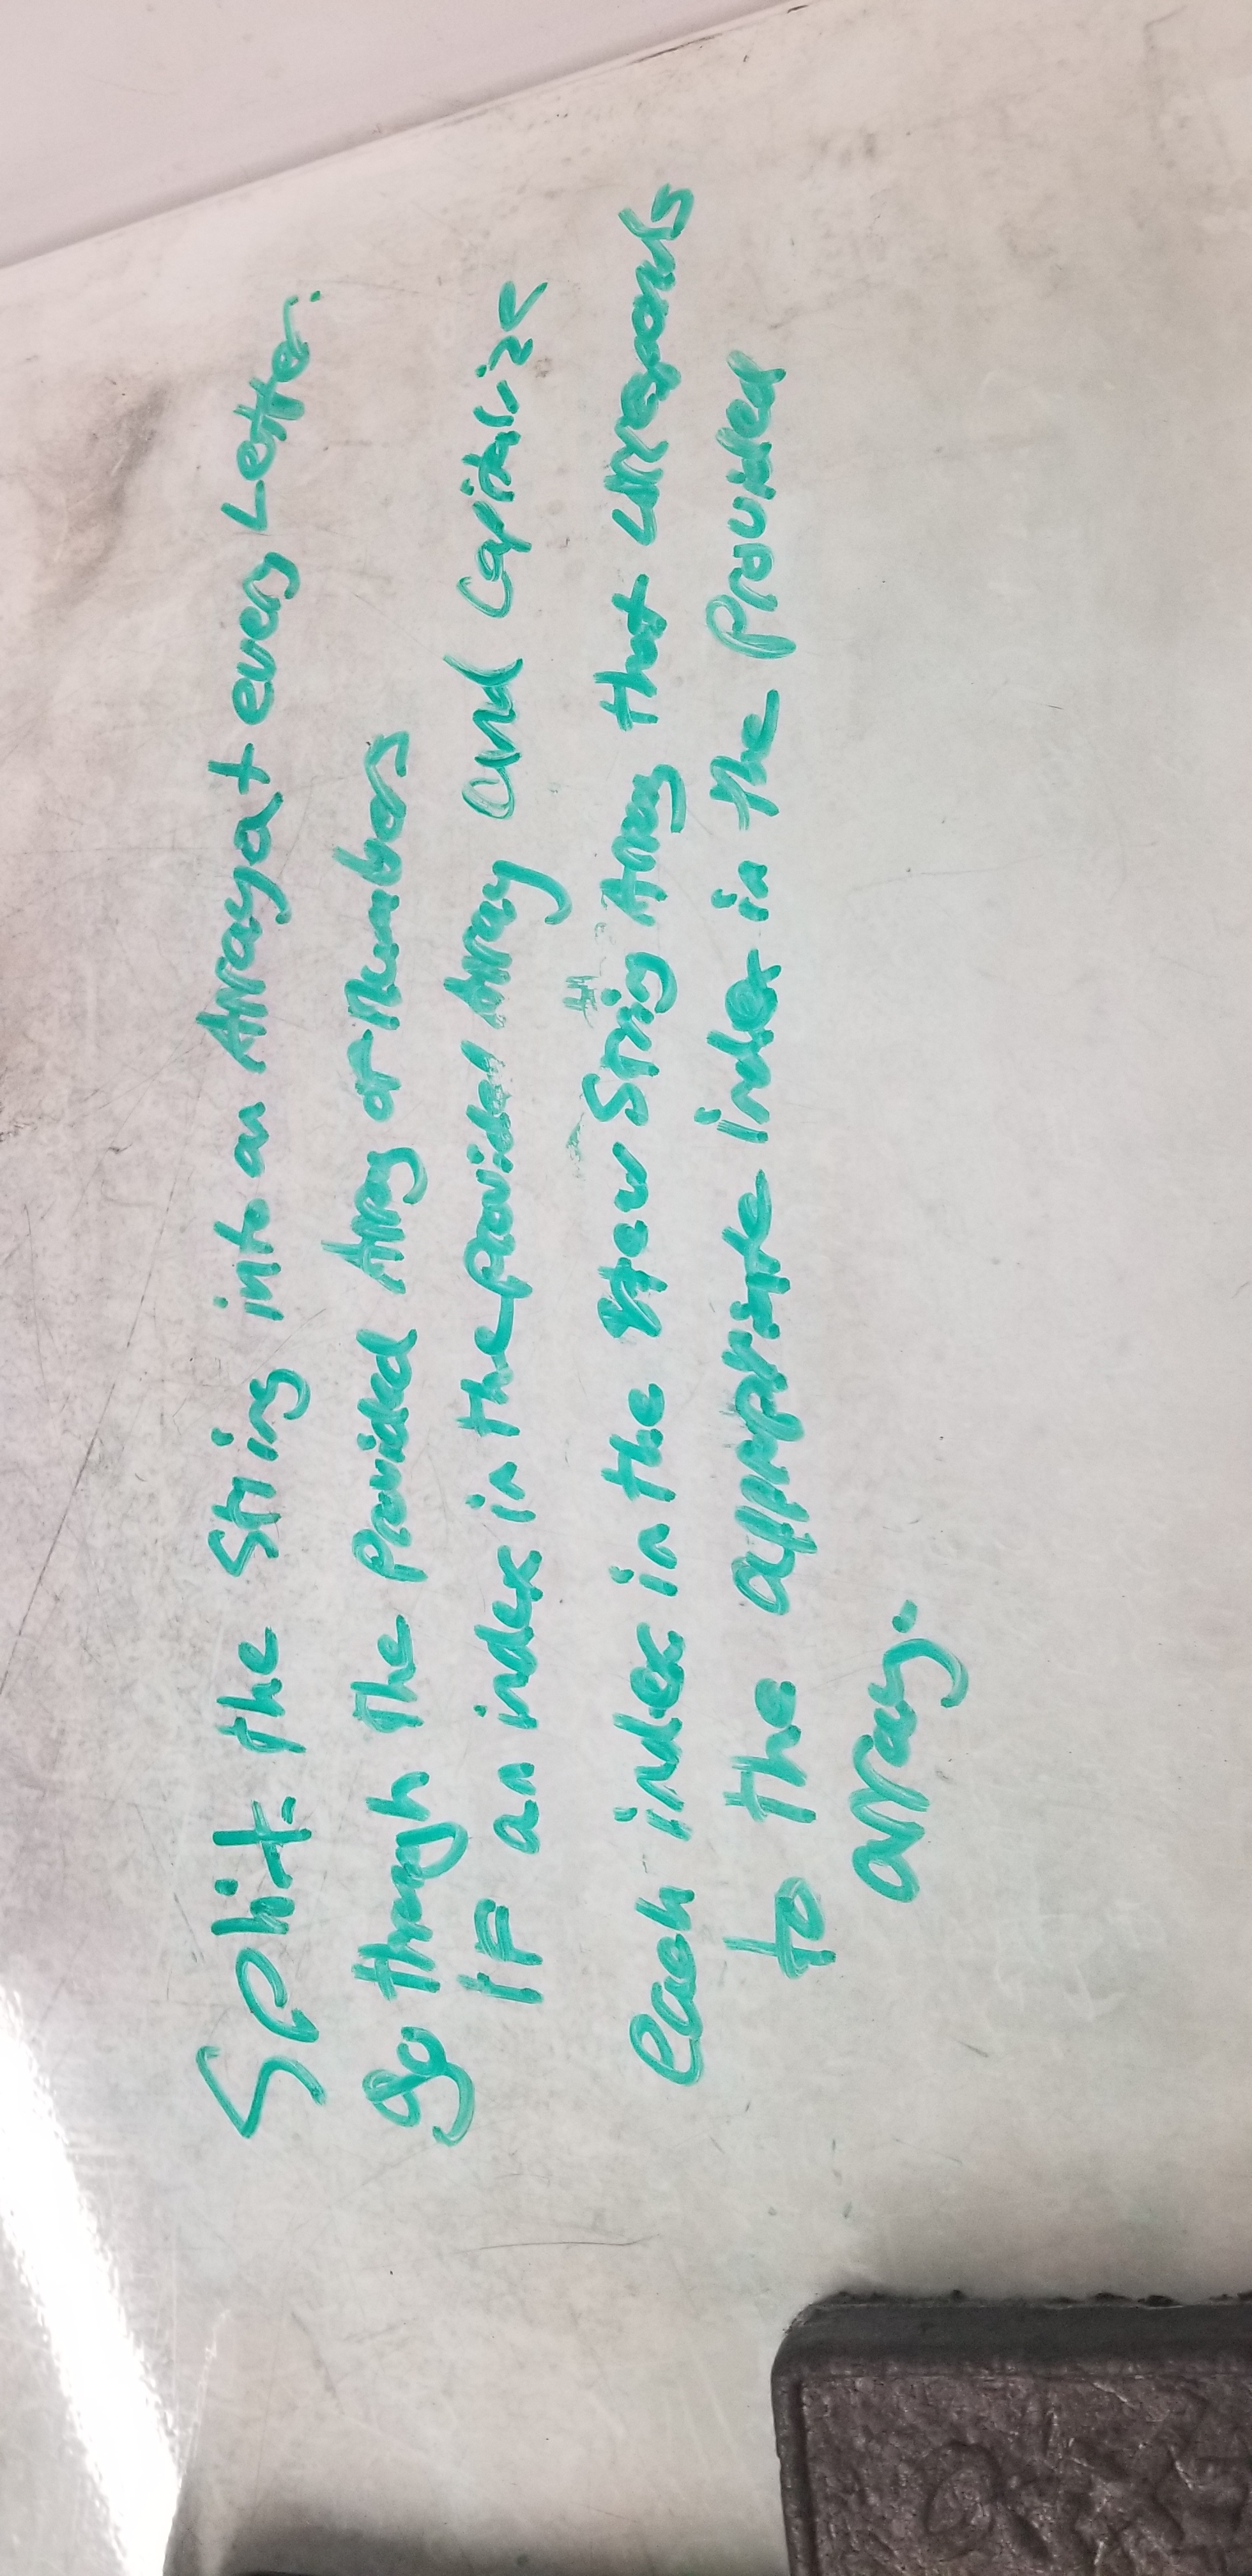 Split the String into an Array at every Letter.
go through the Provided Array of Numbers
IF an index in the provided Array and Capitalize
each index in the New String Array that corresponds
to the appropriate index in the Provided
array.